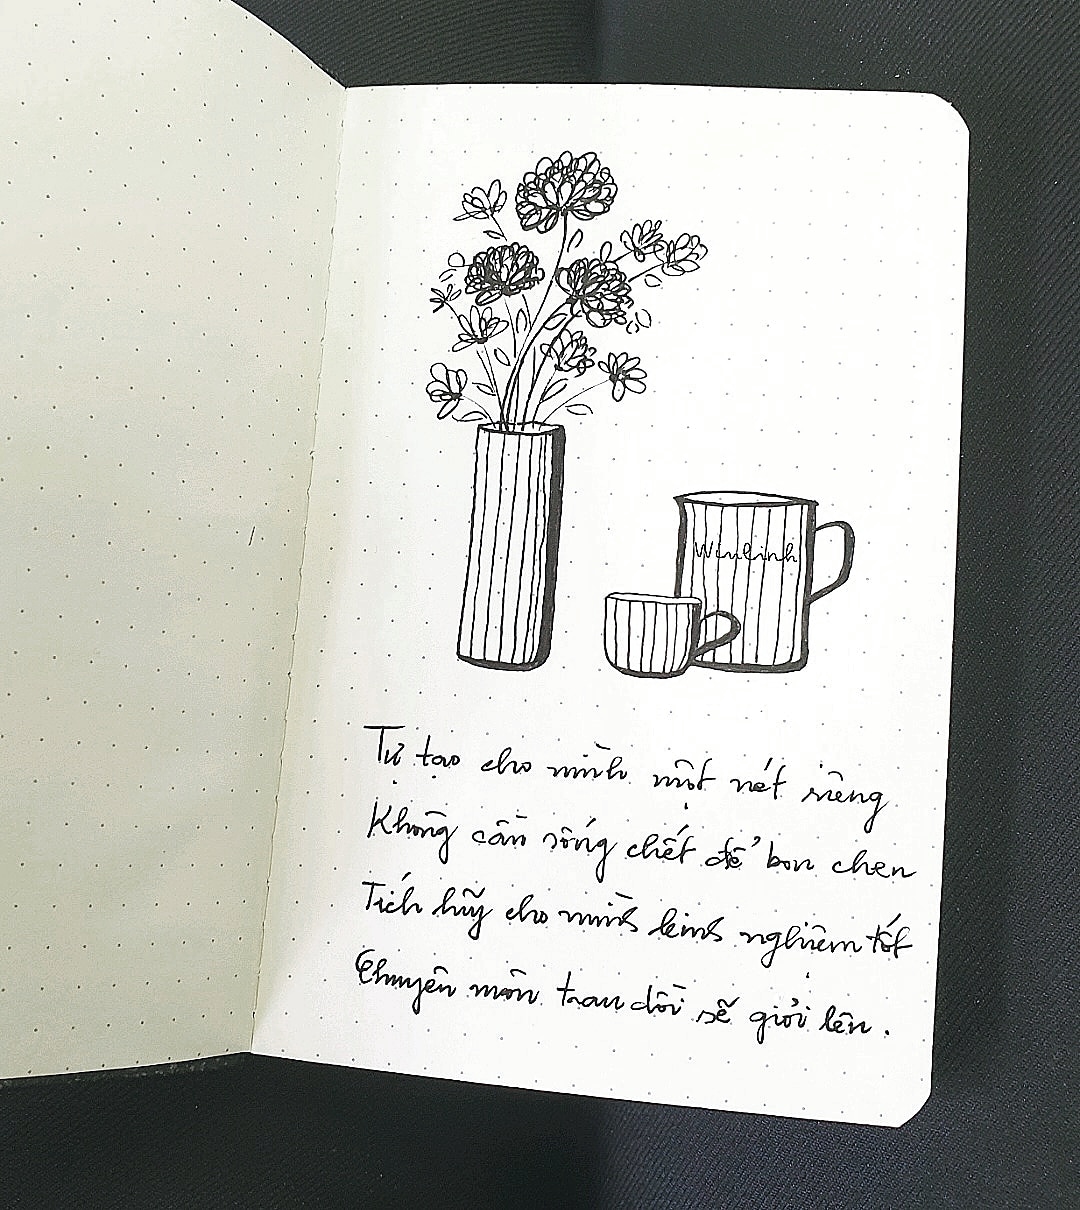 Winlinh
Tự tạo cho mình một nét riêng
Không cần sống chết để bon chen
Tích lũy cho mình kinh nghiệm tốt
Chuyên môn trau dồi sẽ giỏi lên.